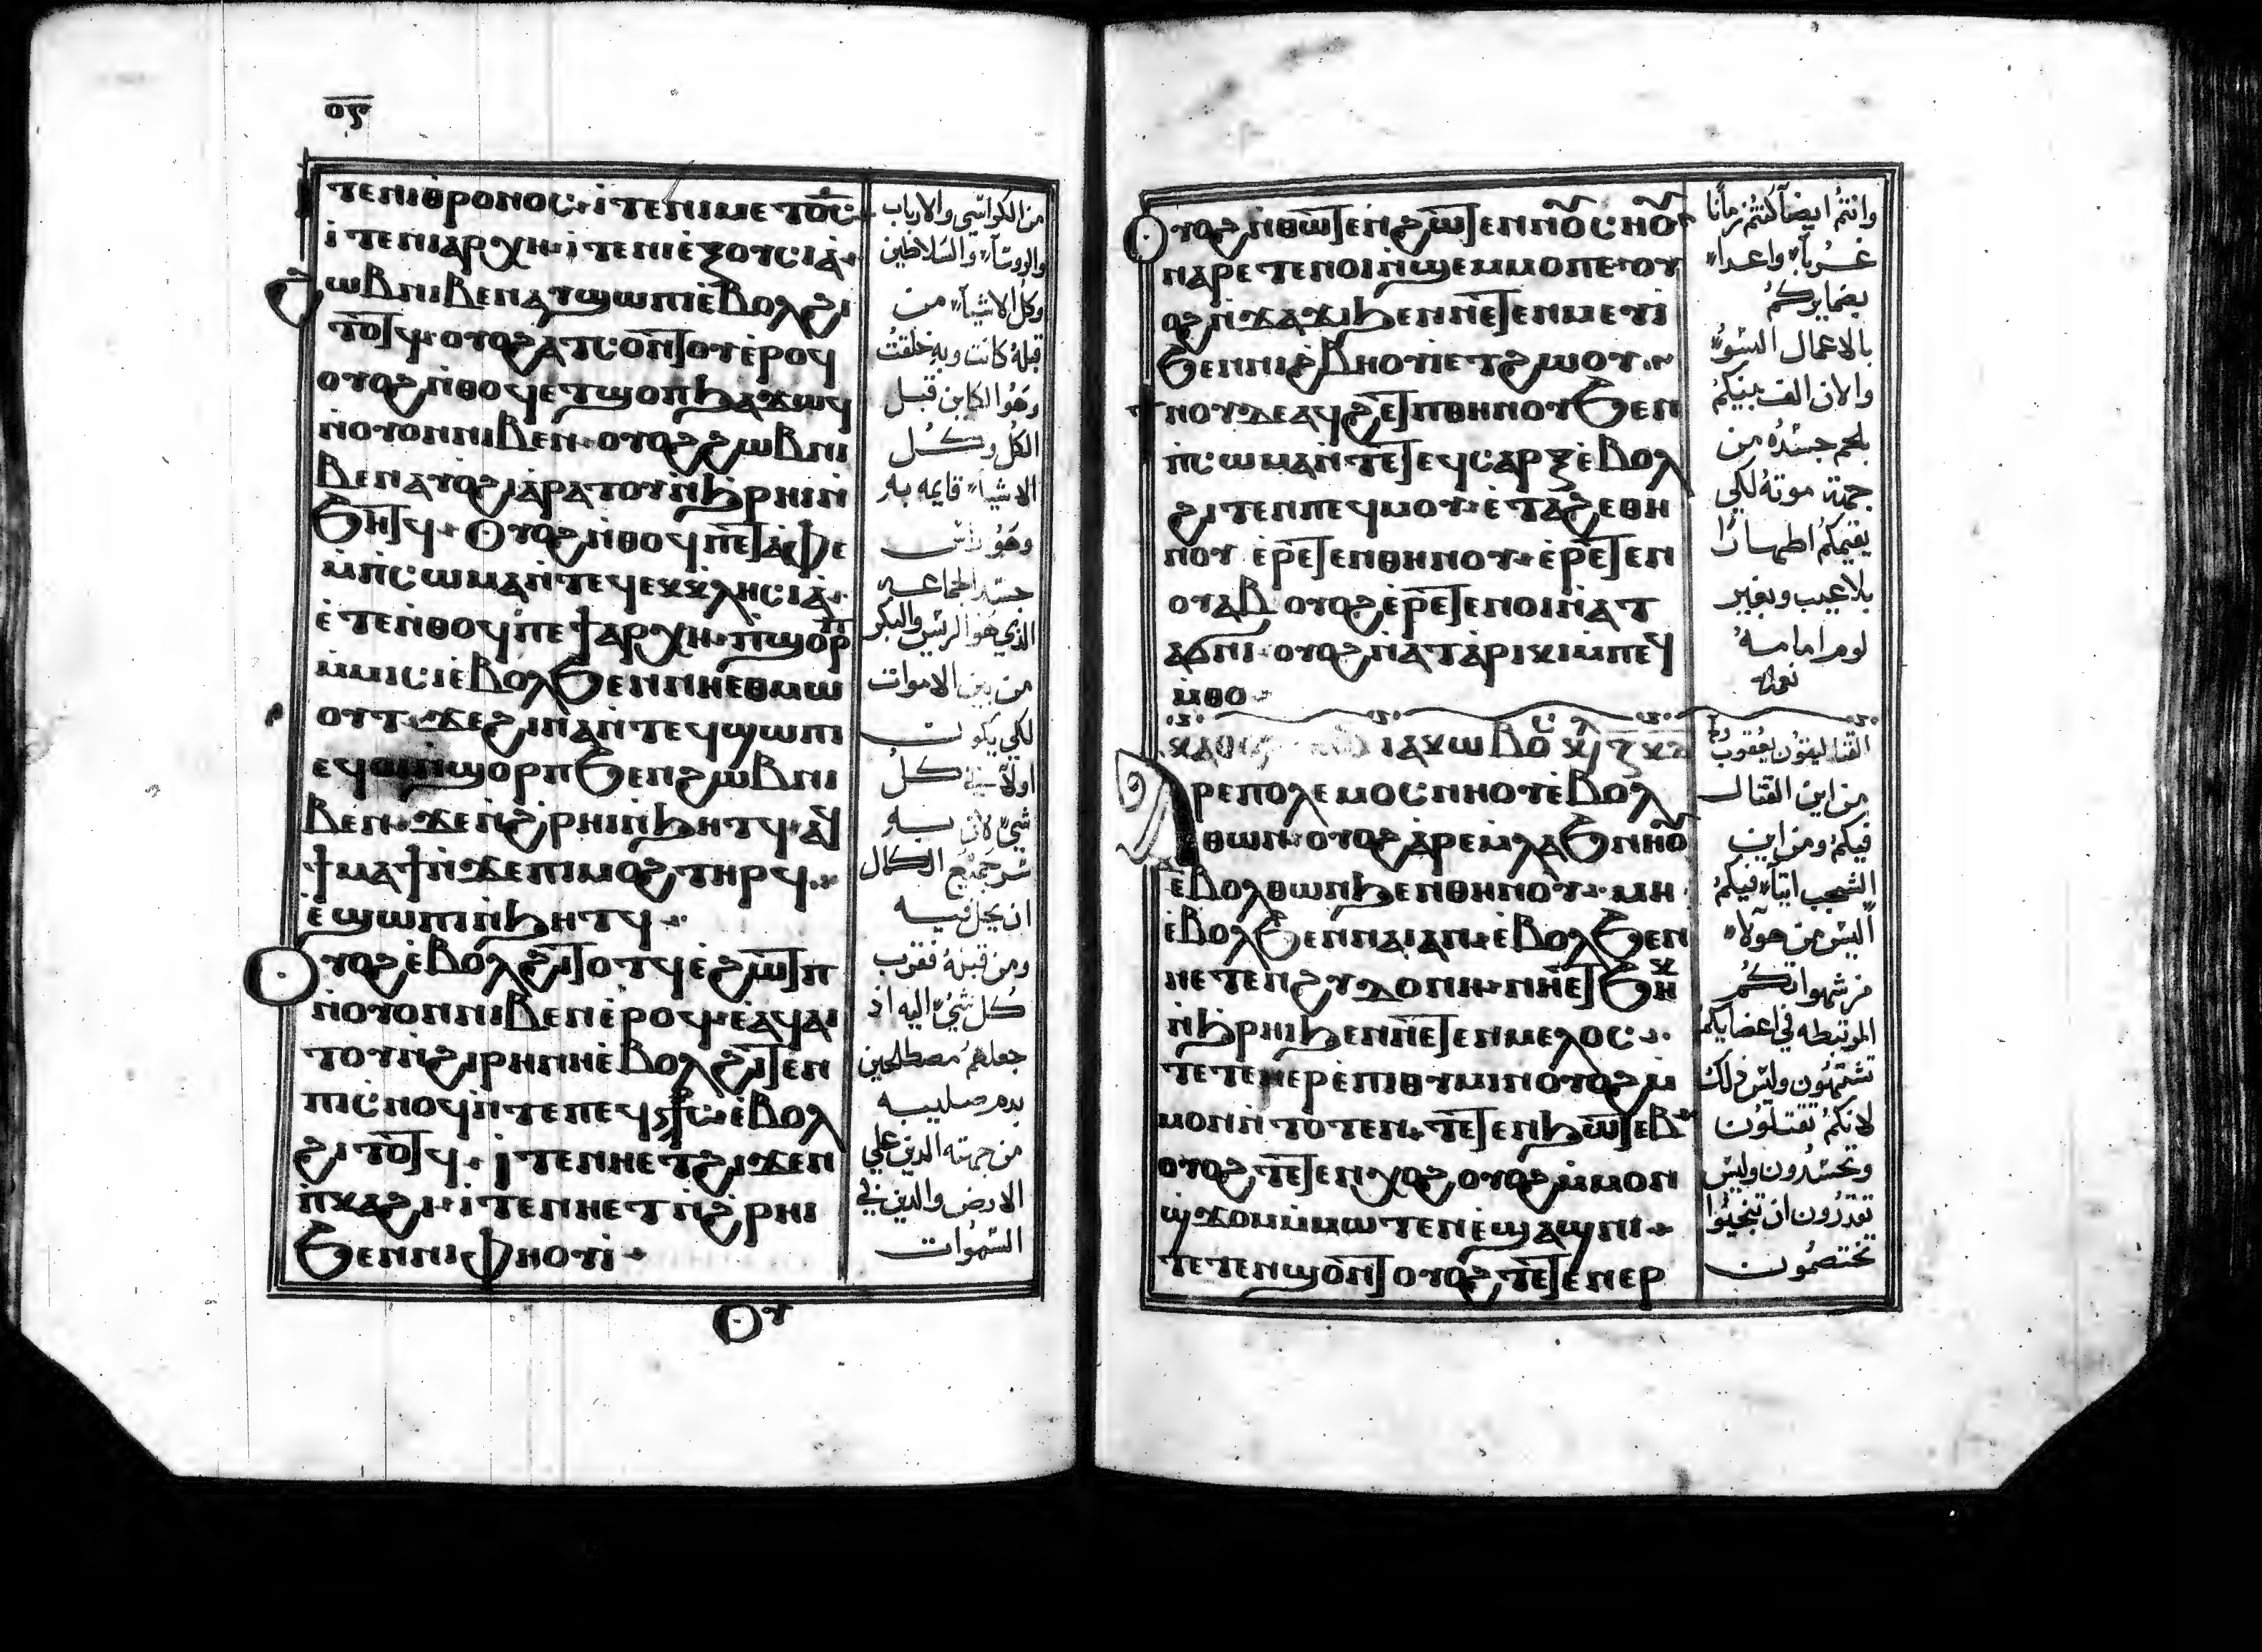 ⲟⲋ
ⲧⲉⲛⲓⲑⲣⲟⲛⲟⲥ ⲓⲧⲉⲛⲓⲙⲉⲧⲟ̅ⲥ̅
ⲓⲧⲉⲛⲓⲁⲣⲭⲏ ⲓⲧⲉⲛⲓⲉ̀ⲝⲟⲩⲥⲓⲁ̀
ϩⲱⲃⲛⲓⲃⲉⲛⲁⲩϣⲱⲡⲓⲉ̀ⲃⲟⲗϩⲓ
ⲧⲟⲧϥ ⲟⲩⲟϩⲁⲩⲥⲟⲛⲧⲟⲩⲉ̀ⲣⲟϥ
ⲟⲩⲟϩⲛ̀ⲑⲟϥⲉⲧϣⲟⲡϧⲁϫⲱϥ
ⲛ̀ⲟⲩⲟⲛⲛⲓⲃⲉⲛ ⲟⲩⲟϩϩⲱⲃⲛⲓ
ⲃⲉⲛⲁⲩⲟϩⲓⲁ̀ⲣⲁⲧⲟⲩⲛ̀ϧⲣⲏⲓⲛ̀
ϧⲏⲧϥ ⲟⲩⲟϩⲛ̀ⲑⲟϥⲡⲉⲧⲁ̀ⲫⲉ
ⲙ̀ⲡⲥⲱⲙⲁⲛ̀ⲧⲉϥⲉⲕⲕⲗⲏⲥⲓⲁ̀
ⲉ̀ⲧⲉⲛ̀ⲑⲟϥⲡⲉϯⲁⲣⲭⲏ ⲡϣⲟⲣⲡ
ⲙ̀ⲙⲓⲥⲓⲉ̀ⲃⲟⲗϧⲉⲛⲛⲏⲉⲑⲙⲱ
ⲟⲩⲧ ϫⲉϩⲓⲛⲁⲛ̀ⲧⲉϥϣⲱⲡⲓ
ⲉϥⲟⲓⲛ̀ϣⲟⲣⲡϧⲉⲛϩⲱⲃⲛⲓ
ⲃⲉⲛ ϫⲉⲛ̀ϩⲣⲏⲓⲛ̀ϧⲏⲧϥ ⲁϥ
ϯⲙⲁϯⲛ̀ϫⲉⲡⲓⲙⲟϩⲧⲏⲣϥ
ⲉ̀ϣⲱⲡⲓⲛ̀ϧⲏⲧϥ
ⲟⲩⲟϩⲉ̀ⲃⲟⲗϩⲓⲧⲟⲧϥⲉ̀ϩⲱⲧⲡ
ⲛ̀ⲟⲩⲟⲛⲛⲓⲃⲉⲛⲉ̀ⲣⲟϥ ⲉ̀ⲁϥⲁⲓ
ⲧⲟⲩⲛ̀ϩⲓⲣⲏⲛⲏⲉ̀ⲃⲟⲗϩⲓⲧⲉⲛ
ⲡⲓⲥⲛⲟϥⲛ̀ⲧⲉⲡⲉϥⲥ⳨ⲥ ⲉ̀ⲃⲟⲗ
ϩⲓⲧⲟⲧϥ ⲓⲧⲉⲛⲏⲉⲧϩⲓϫⲉⲛ
ⲡ̀ⲕⲁϩⲓ ⲓⲧⲉⲛⲏⲉⲧⲛ̀ϩⲣⲏⲓ
ϧⲉⲛⲛⲓⲫⲏⲟⲩⲓ
ⲟⲩ
من الكراسي والارباب
والروسآء والسلاطين
وكل الاشيآء من
قبله كانت وبه خلقت
وهو الكاين قبل
الكل وكل
الاشيآء قايمه به
وهو راس
جسد الجماعه
الذي هو الريس والبكر
من بين الاموات
لكي يكون
اولآ في كل
شي لان به
سر جميع الكمال
ان يحل فيه
ومن قبله فقرب
كل شي اليه اذ
جعلهم مصطلحين
بدم صليبه
من جهته الذين علي
الارض والذين في
السموات
ⲟⲩⲟϩⲛ̀ⲑⲱⲧⲉⲛϩⲱⲧⲉⲛⲛ̀ⲟⲩⲥⲏⲟⲩ
ⲛⲁⲣⲉⲧⲉⲛⲟⲓⲛ̀ϣⲉⲙⲙⲟⲡⲉ ⲟⲩ
ⲟϩⲛ̀ϫⲁϫⲓϧⲉⲛⲛⲉⲧⲉⲛⲙⲉⲩⲓ
ϧⲉⲛⲛⲓϩ̀ⲃⲏⲟⲩⲓⲉⲧϩⲱⲟⲩ
ϯⲛⲟⲩⲇⲉⲁϥϩⲉⲧⲡⲑⲏⲛⲟⲩϧⲉⲛ
ⲡ̀ⲥⲱⲙⲁⲛ̀ⲧⲉⲧⲉϥⲥⲁⲣⲝⲉ̀ⲃⲟⲗ
ϩⲓⲧⲉⲛⲡⲉϥⲙⲟⲩ ⲉ̀ⲧⲁϩⲉⲑⲏ
ⲛⲟⲩ ⲉ̀ⲣⲉⲧⲉⲛⲑⲏⲛⲟⲩ ⲉ̀ⲣⲉⲧⲉⲛ
ⲟⲩⲁⲃ ⲟⲩⲟϩⲉ̀ⲣⲉⲧⲉⲛⲟⲓⲛ̀ⲁⲧ
ⲁϭⲛⲓ ⲟⲩⲟϩⲛ̀ⲁⲧⲁ̀ⲣⲓⲕⲓⲙ̀ⲡⲉϥ
ⲙ̀ⲑⲟ
ⲓⲁⲕⲱⲃⲟ
ⲁⲣⲉⲡⲟⲗⲉⲙⲟⲥⲛⲏⲟⲩⲉ̀ⲃⲟⲗ
ⲑⲱⲛ ⲟⲩⲟϩⲁ̀ⲣⲉⲙ̀ⲗⲁϧⲛⲏⲟⲩ
ⲉ̀ⲃⲟⲗⲑⲱⲛϧⲉⲛⲑⲏⲛⲟⲩ ⲙⲏ
ⲉ̀ⲃⲟⲗϧⲉⲛⲛⲁⲓⲁⲛ ⲉ̀ⲃⲟⲗϧⲉⲛ
ⲛⲉⲧⲉⲛϩⲩⲇⲟⲛⲏ ⲛⲏⲉⲧϧⲏⲕ
ⲛ̀ϧⲣⲏⲓϧⲉⲛⲛⲉⲧⲉⲛⲙⲉⲗⲟⲥ
ⲧⲉⲧⲉⲛⲉⲣⲉ̀ⲡⲓⲑⲩⲙⲓⲛⲟⲩⲟϩⲙ̀
ⲙⲟⲛⲛ̀ⲧⲟⲧⲉⲛ ⲧⲉⲧⲉⲛϧⲱⲧⲉⲃ
ⲟⲩⲟϩⲧⲉⲧⲉⲛⲭⲟϩ ⲟⲩⲟϩⲙ̀ⲙⲟⲛ
ϣ̀ϫⲟⲙⲙ̀ⲙⲱⲧⲉⲛⲉ̀ϣⲁϣⲛⲓ
ⲧⲉⲧⲉⲛϣⲟⲛⲧ ⲟⲩⲟϩⲧⲉⲧⲉⲛⲉⲣ
وانتم ايضآ كنتم زمانا
غربآء واعدآء
بضمايركم
بالاعمال السوء
والان الف بينكم
بلحم جسده من
جهة موته لكي
يقيمكم اطهارا
بلا عيب وبغير
لوم امامه
نعمه
القتاليقون يعقوب
من اين القتال
فيكم ومن اين
الشجب اتيآء فيكم
اليس من هولاء
من شهواتكم
المرتبطه في اعضايكم
تشتهون وليس لك
لانكم تقتلون
وتحسدون وليس
تقدرون ان تنجيوا
تختصمون